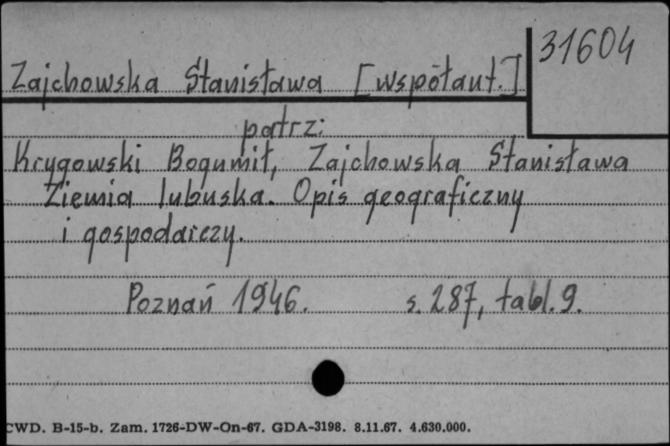 31604
Zajchowska Stanisława [współaut.]
patrz:
Krygowski Bogumił, Zajchowska Stanisława
Ziemia lubuska. Opis geograficzny
i gospodarczy.
Poznań 1946. s. 287, tabl. 9.
CWD. B-15-b. Zam. 1726-DW-On-67. GDA-3198. 8.11.67. 4.630.000.